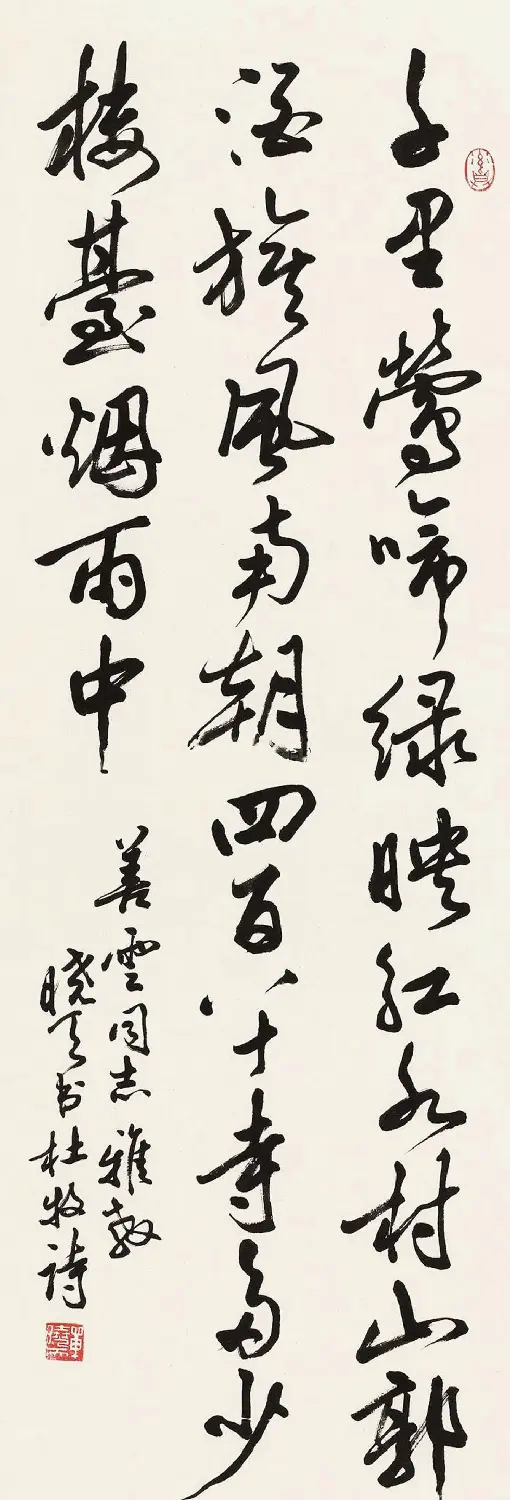 千里莺啼绿映红水村山郭
酒旗风南朝四百八十寺多少
楼臺烟雨中
善雲同志雅教
晓天书杜牧诗